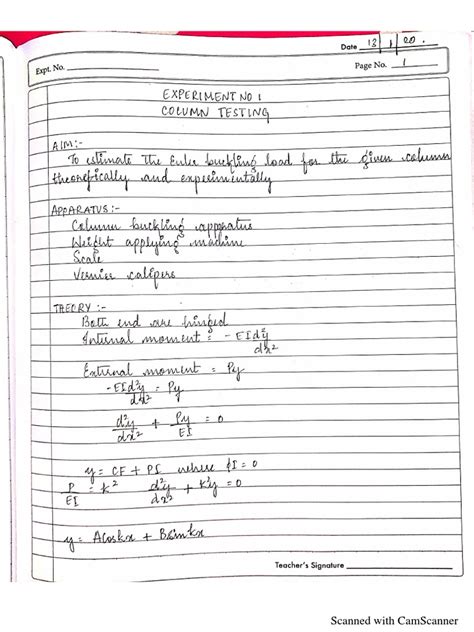 Date 13 | 1 | 20.
Expt. No.
Page No. 1
EXPERIMENT NO 1
COLUMN TESTING
AIM:-
To estimate the Euler buckling load for the given column
theoretically and experimentally
APPARATUS:-
Column buckling apparatus
Weight applying machine
Scale
Vernier calipers
THEORY:-
Both end are hinged
Internal moment = -EId²y/dx²
External moment = Py
-EId²y/dx² = Py
d²y/dx² + Py/EI = 0
y = CF + PI where PI = 0
P/EI = k² d²y/dx² + k²y = 0
y = Acoskx + Bsinkx
Teacher's Signature
Scanned with CamScanner